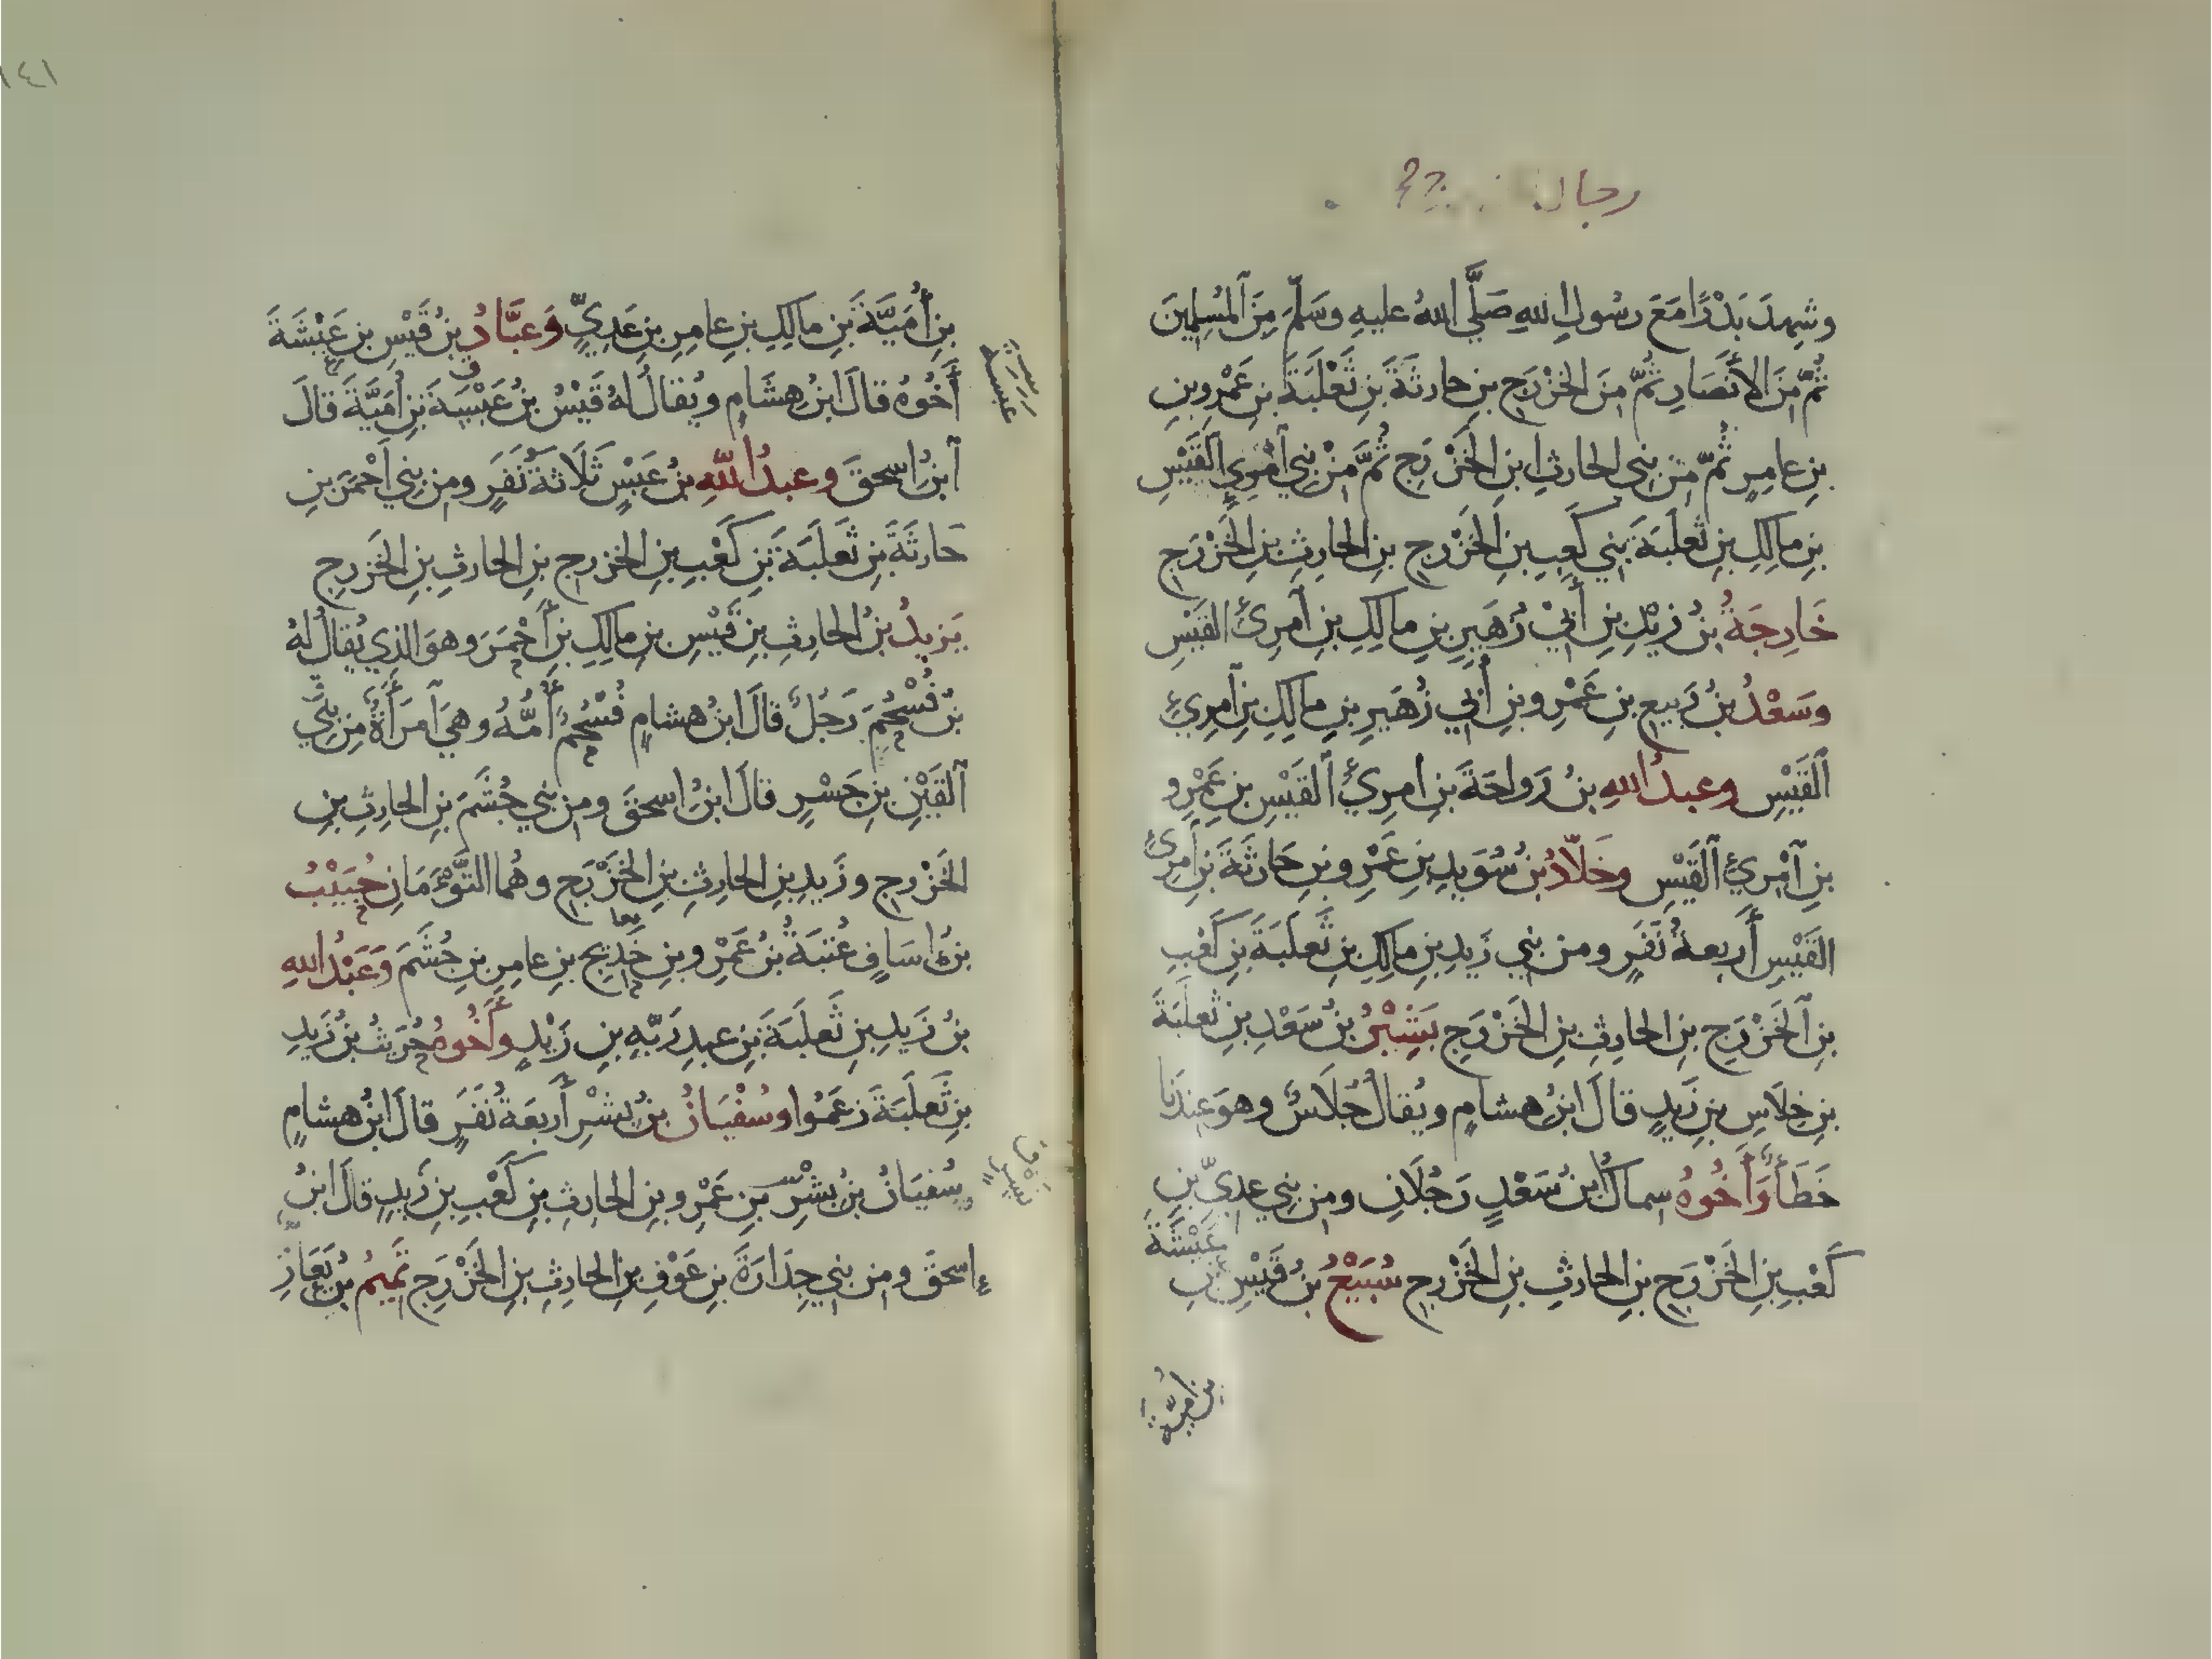 رجال
وشهِدَ بَدْرًا مَعَ رسُولِ اللهِ صَلَّي اللهُ عليهِ وسَلَّمَ مِنَ ٱلمُسلِمِينَ
ثُمَّ مِنَ الأَنصَارِ ثُمَّ مِنَ الخَزْرَجِ بنِ حارثَةَ بنِ ثَعْلَبَةَ بنِ عَمْرِو بنِ
بنِ عامِرٍ ثُمَّ مِنْ بني الحارثِ ابنِ الخَزْرَجِ ثُمَّ مِنْ بنِي ٱمْرِيِ ٱلقَيْسِ
بنِ مالِكِ بنِ ثَعْلَبَةَ بني كَعبِ بنِ الخَزْرجِ بنِ الحارِثِ بنِ الخَزْرَجِ
خَارِجَةُ بنُ زيْدِ بنِ أَبِيْ زُهَيرِ بنِ مالِكِ بنِ ٱمرِئِ القَيْسِ
وسَعْدُ بنُ رَبيعِ بنِ عَمْرِو بنِ أَبي زُهَيرِ بنِ مالِكِ بنِ ٱمرِئِ
ٱلقَيْسِ وعبدُ اللهِ بنُ رَواحَةَ بنِ امرِئِ ٱلقَيْسِ بنِ عَمْرِو
بنِ ٱمْرِئِ ٱلقَيْسِ وخَلّادُ بنُ سُوَيدِ بنِ عَمْرِو بنِ حَارثَةَ بنِ ٱمرِئِ
القَيْسِ أَربعةُ نَفَرٍ ومن بني زَيدِ بنِ مالِكِ بنِ ثَعلَبَةَ بنِ كَعْبِ
بنِ ٱلخَزْرَجِ بنِ الحارِثِ بنِ الخَزْرَجِ بَشِيْرُ بنُ سَعْدِ بنِ ثَعلَبَةَ
بنِ خِلَاسِ بنِ زَيدٍ قالَ ابنُ هشامٍ ويُقالُ جُلَاسٌ وهوَ عِندَنا
خَطَأٌ وَأَخُوهُ سِماكُ ابنُ سَعْدٍ رَجُلَانِ ومن بني عدِيِّ بنِ
كَعْبِ بنِ الخَزْرَجِ بنِ الحارِثِ بنِ الخَزْرجِ سُبَيْعُ بنُ قَيْسِ بنِ عَيْشَةَ
بن أميّة
١٤١
بنِ أُمَيَّةَ بنِ مالِكِ بنِ عامِرِ بنِ عَدِيٍّ وَعبَّادُ بنُ قَيْسِ بنِ عَيْشَةَ
أَخُوهُ قالَ ابنُ هِشَامٍ ويُقالُ لهُ قَيْسُ بنُ عَبْسَةَ بنِ أُمَيَّةَ قالَ
ٱبنُ إسحقَ وعبدُ اللّهِ بنُ عَبْسٍ ثَلَاثةُ نَفَرٍ ومِن بني أَحْمَرَ بنِ
حَارثَةَ بنِ ثَعلَبَةَ بنِ كَعْبِ بنِ الخزرجِ بنِ الحارثِ بنِ الخَزرجِ
يَزيدُ بنُ الحارثِ بنِ قَيْسِ بنِ مالِكِ بنِ أَحْمَرَ وهوَ الذِي يُقالُ لهُ
بنُ فُسْحُمَ رَجُلٌ قالَ ابنُ هشامٍ فُسْحُمُ أُمُّهُ وهيَ ٱمرَأَةٌ مِن بَنِي
ٱلقَيْنِ بنِ جَسْرٍ قالَ ابنُ إسحقَ ومِن بني جُشَمَ بنِ الحارِثِ بنِ
الخَزْرجِ وزَيدِ بنِ الحارثِ بنِ الخَزْرَجِ وهُما التَّوْءَمَانِ خُبَيْبُ
بنُ إسَافٍ عُتبَةُ بنُ عَمْرِو بنِ خَدِيجِ بنِ عامِرِ بنِ جُشَمَ وَعَبْدُ اللهِ
بنُ زَيدِ بنِ ثَعلَبَةَ بنِ عبدِ رَبِّهِ بنِ زَيْدٍ وأَخُوهُ حُرَيثُ بنُ زَيدِ
بنِ ثَعلَبَةَ زعَمُوا وسُفْيَانُ بنُ بشْرٍ أَربعَةُ نَفَرٍ قالَ ابنُ هشامٍ
سُفيَانُ بنُ بشْرِ بنِ عَمْرِو بنِ الحارِثِ بنِ كَعْبِ بنِ زَيدٍ قالَ ابنُ
إسحقَ ومن بني جِدَارَةَ بنِ عَوْفِ بنِ الحارِثِ بنِ الخَزْرَجِ تَمِيمُ بنُ يَعَارِ